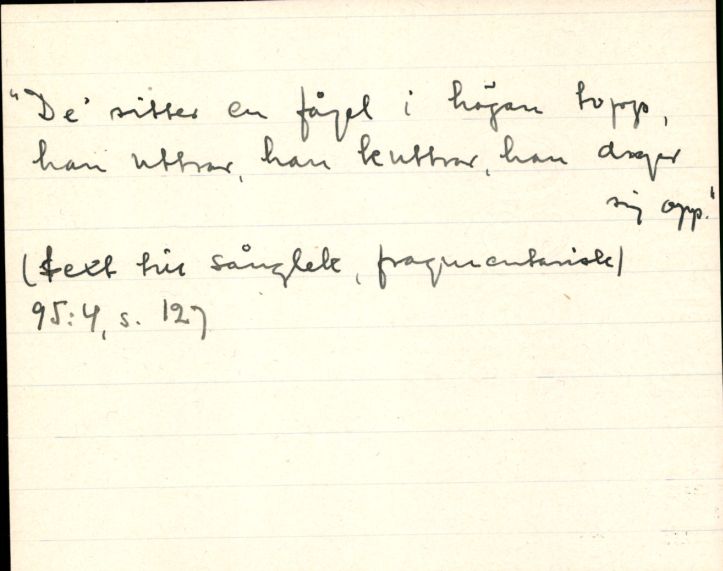 "De' sitter en fågel i högan topp,
han uttrar, han kuttrar, han drager
sig opp."
(text till sånglek, fragmentarisk)
95:4, s. 127